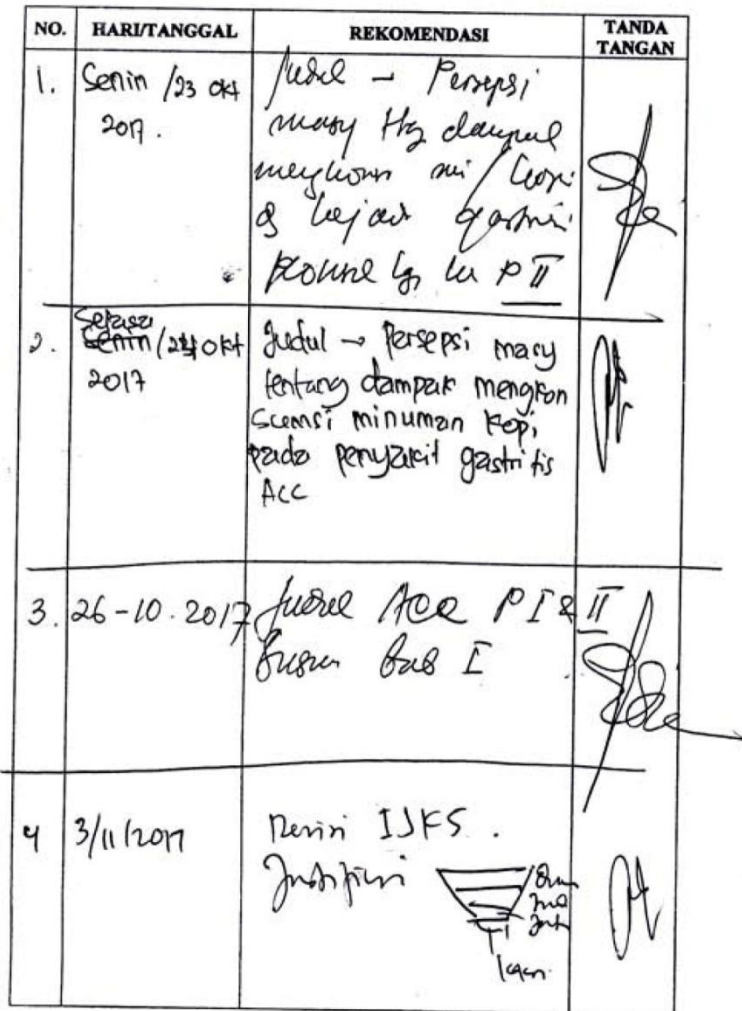 NO. HARI/TANGGAL REKOMENDASI TANDA TANGAN
1. Senin /23 Okt 2017.
Judul → Persepsi
masy ttg dampak
mengkons mi / kopi
kejad gastritis
Konsul lg ke P II
2. Selasa
Senin /24 Okt
2017
Judul → Persepsi masy
tentang dampak mengkon
sumsi minuman kopi
pada penyakit gastritis
ACC
3. 26-10-2017
Judul Acc P I & II
Susun Bab I
4 3/11/2017
Revisi IJKS.
Justifikasi